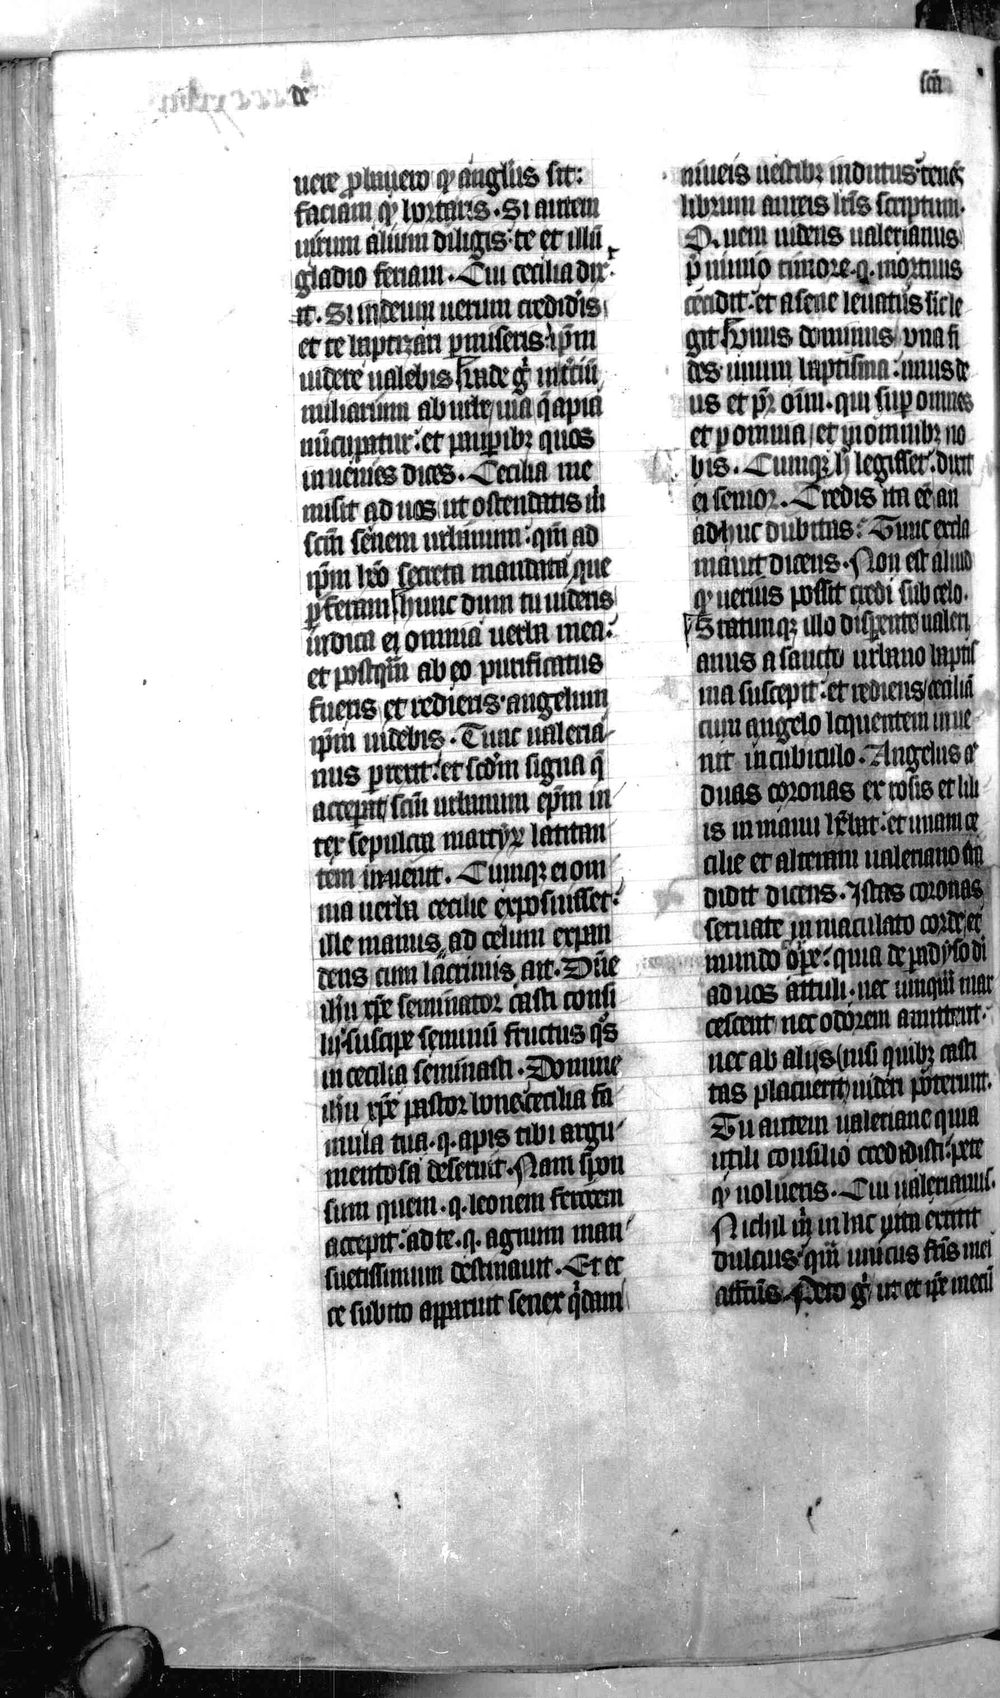 de
scā
uere ꝓbauero ꝙ angl̄us sit:
faciam ꝙ hortaris. Si autem
uirum alium diligis te et illū
gladio feriam. Cui cecilia dix
it. Si in deum uerum credid̓is
et te baptizari ꝓmiseris: ip̄m
uidere ualebis Uade g̊ in t̓ciū
miliarium ab urbe uia q̄ apia
nūcupatur: et pauꝑibꝫ quos
inuenies dices. Cecilia me
misit ad uos ut ostendatis m̄
scm̄ senem urbanum: qm̄ ad
ip̄m hēo secreta mandata que
ꝑferam hunc dum tu uideris
indica ei omnia uerba mea:
et postqm̄ ab eo purificatus
fueris et redieris angelum
ip̄m uidebis. Tunc ualeria
nus ꝑrexit: et scd̄m signa q̄
acceperat scm̄ urbanum ep̄m in
ter sepulcra martyꝝ latitan
tem inuenit. Cumqꝫ ei om
nia uerba cecilie exposuisset:
ille manus ad celum expan
dens cum lacrimis ait. Dn̄e
ih̄u xp̄e seminator casti consi
lij suscipe seminū fructus q̊s
in cecilia seminasti. Domine
ih̄u xp̄e pastor bone cecilia fa
mula tua .q. apis tibi argu
mentosa deseruit. Nam spon
sum quem .q. leonem ferocem
accepit: ad te .q. agnum man
suetissimum destinauit. Et ec
ce subito apparuit senex q̇dam
niueis uestibꝫ indutus tenēs
librum aureis lr̄is scriptum.
Quem uidens ualerianus
p̄ nimio timore .q. mortuus
cecidit: et a sene leuatus sic le
git Unus dominus una fi
des unum baptisma: unus de
us et pr̄ oīm. qui suꝑ omnes
et ꝑ omnia et in omnibꝫ no
bis. Cumqꝫ h̄ legisset. dixit
ei senior. Credis ita eē an
adhuc dubitas: Tunc excla
mauit dicens. Non est aliud
ꝙ uerius possit credi sub celo.
Statimqꝫ illo disparente ualeri
anus a sancto urbano baptis
ma suscepit: et rediens ceciliā
cum angelo loquentem inue
nit in cubiculo. Angelus aū
duas coronas ex rosis et lili
is in manu hēbat: et unam ce
cilie et alteram ualeriano tra
didit dicens. Istas coronas
seruate inmaculato corde et
mundo corpore: quia de padyso di
ad uos attuli. nec unquā mar
cescent nec odorem amittent.
nec ab alijs nisi quibꝫ casti
tas placuerit uideri poterunt.
Tu autem ualeriane quia
utili consilio credidisti: pete
ꝙ uolueris. Cui ualerianus.
Nichil m̄ in hac uita extitit
dulcius qm̄ unicus fr̄is mei
affectus. Peto g̊ ut et ip̄e mecū